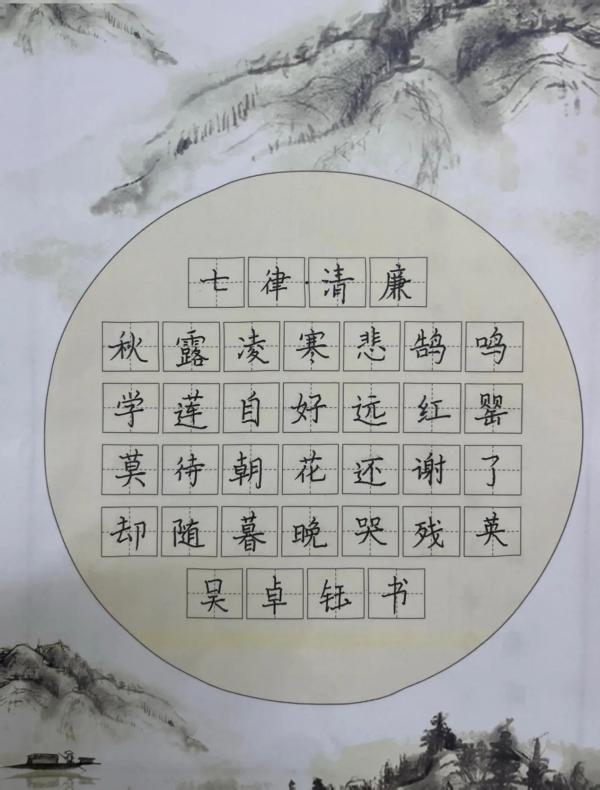 七律·清廉
秋露凌寒悲鹄鸣
学莲自好远红罂
莫待朝花还谢了
却随暮晚哭残英
吴卓钰书